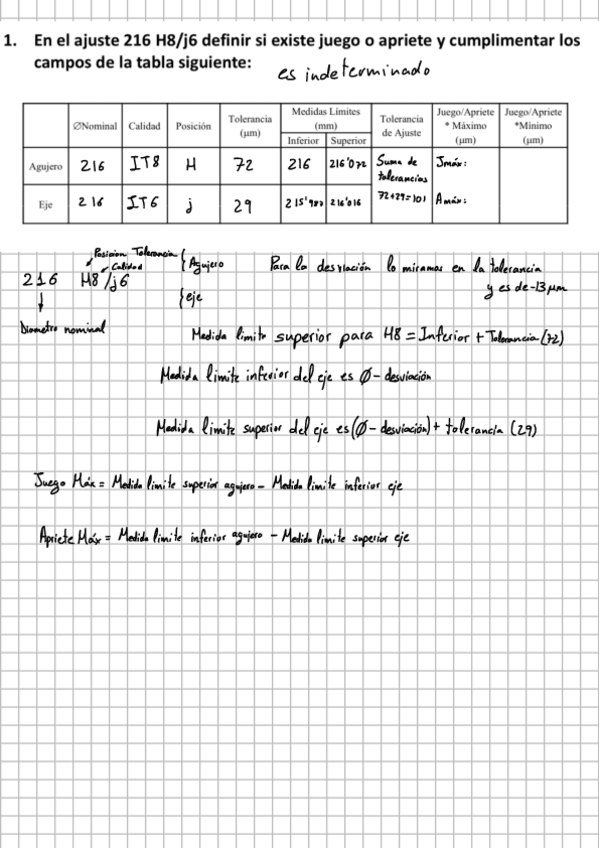 1. En el ajuste 216 H8/j6 definir si existe juego o apriete y cumplimentar los
campos de la tabla siguiente:
es indeterminado
ØNominal Calidad Posición Tolerancia (µm) Medidas Límites (mm) Tolerancia de Ajuste Juego/Apriete * Máximo (µm) Juego/Apriete *Mínimo (µm)
Inferior Superior
Agujero 216 IT8 H 72 216 216'072 Suma de tolerancias Jmáx:
Eje 216 IT6 j 29 215'987 216'016 72+29=101 Amáx:
Posición Tolerancia
Calidad
216 H8/j6
{Agujero
{eje
Diametro nominal
Para la desviación lo miramos en la tolerancia
y es de -13 µm
Medida limite superior para H8 = Inferior + Tolerancia (72)
Medida limite inferior del eje es Ø - desviación
Medida limite superior del eje es (Ø - desviación) + tolerancia (29)
Juego Máx = Medida limite superior agujero - Medida limite inferior eje
Apriete Máx = Medida limite inferior agujero - Medida limite superior eje